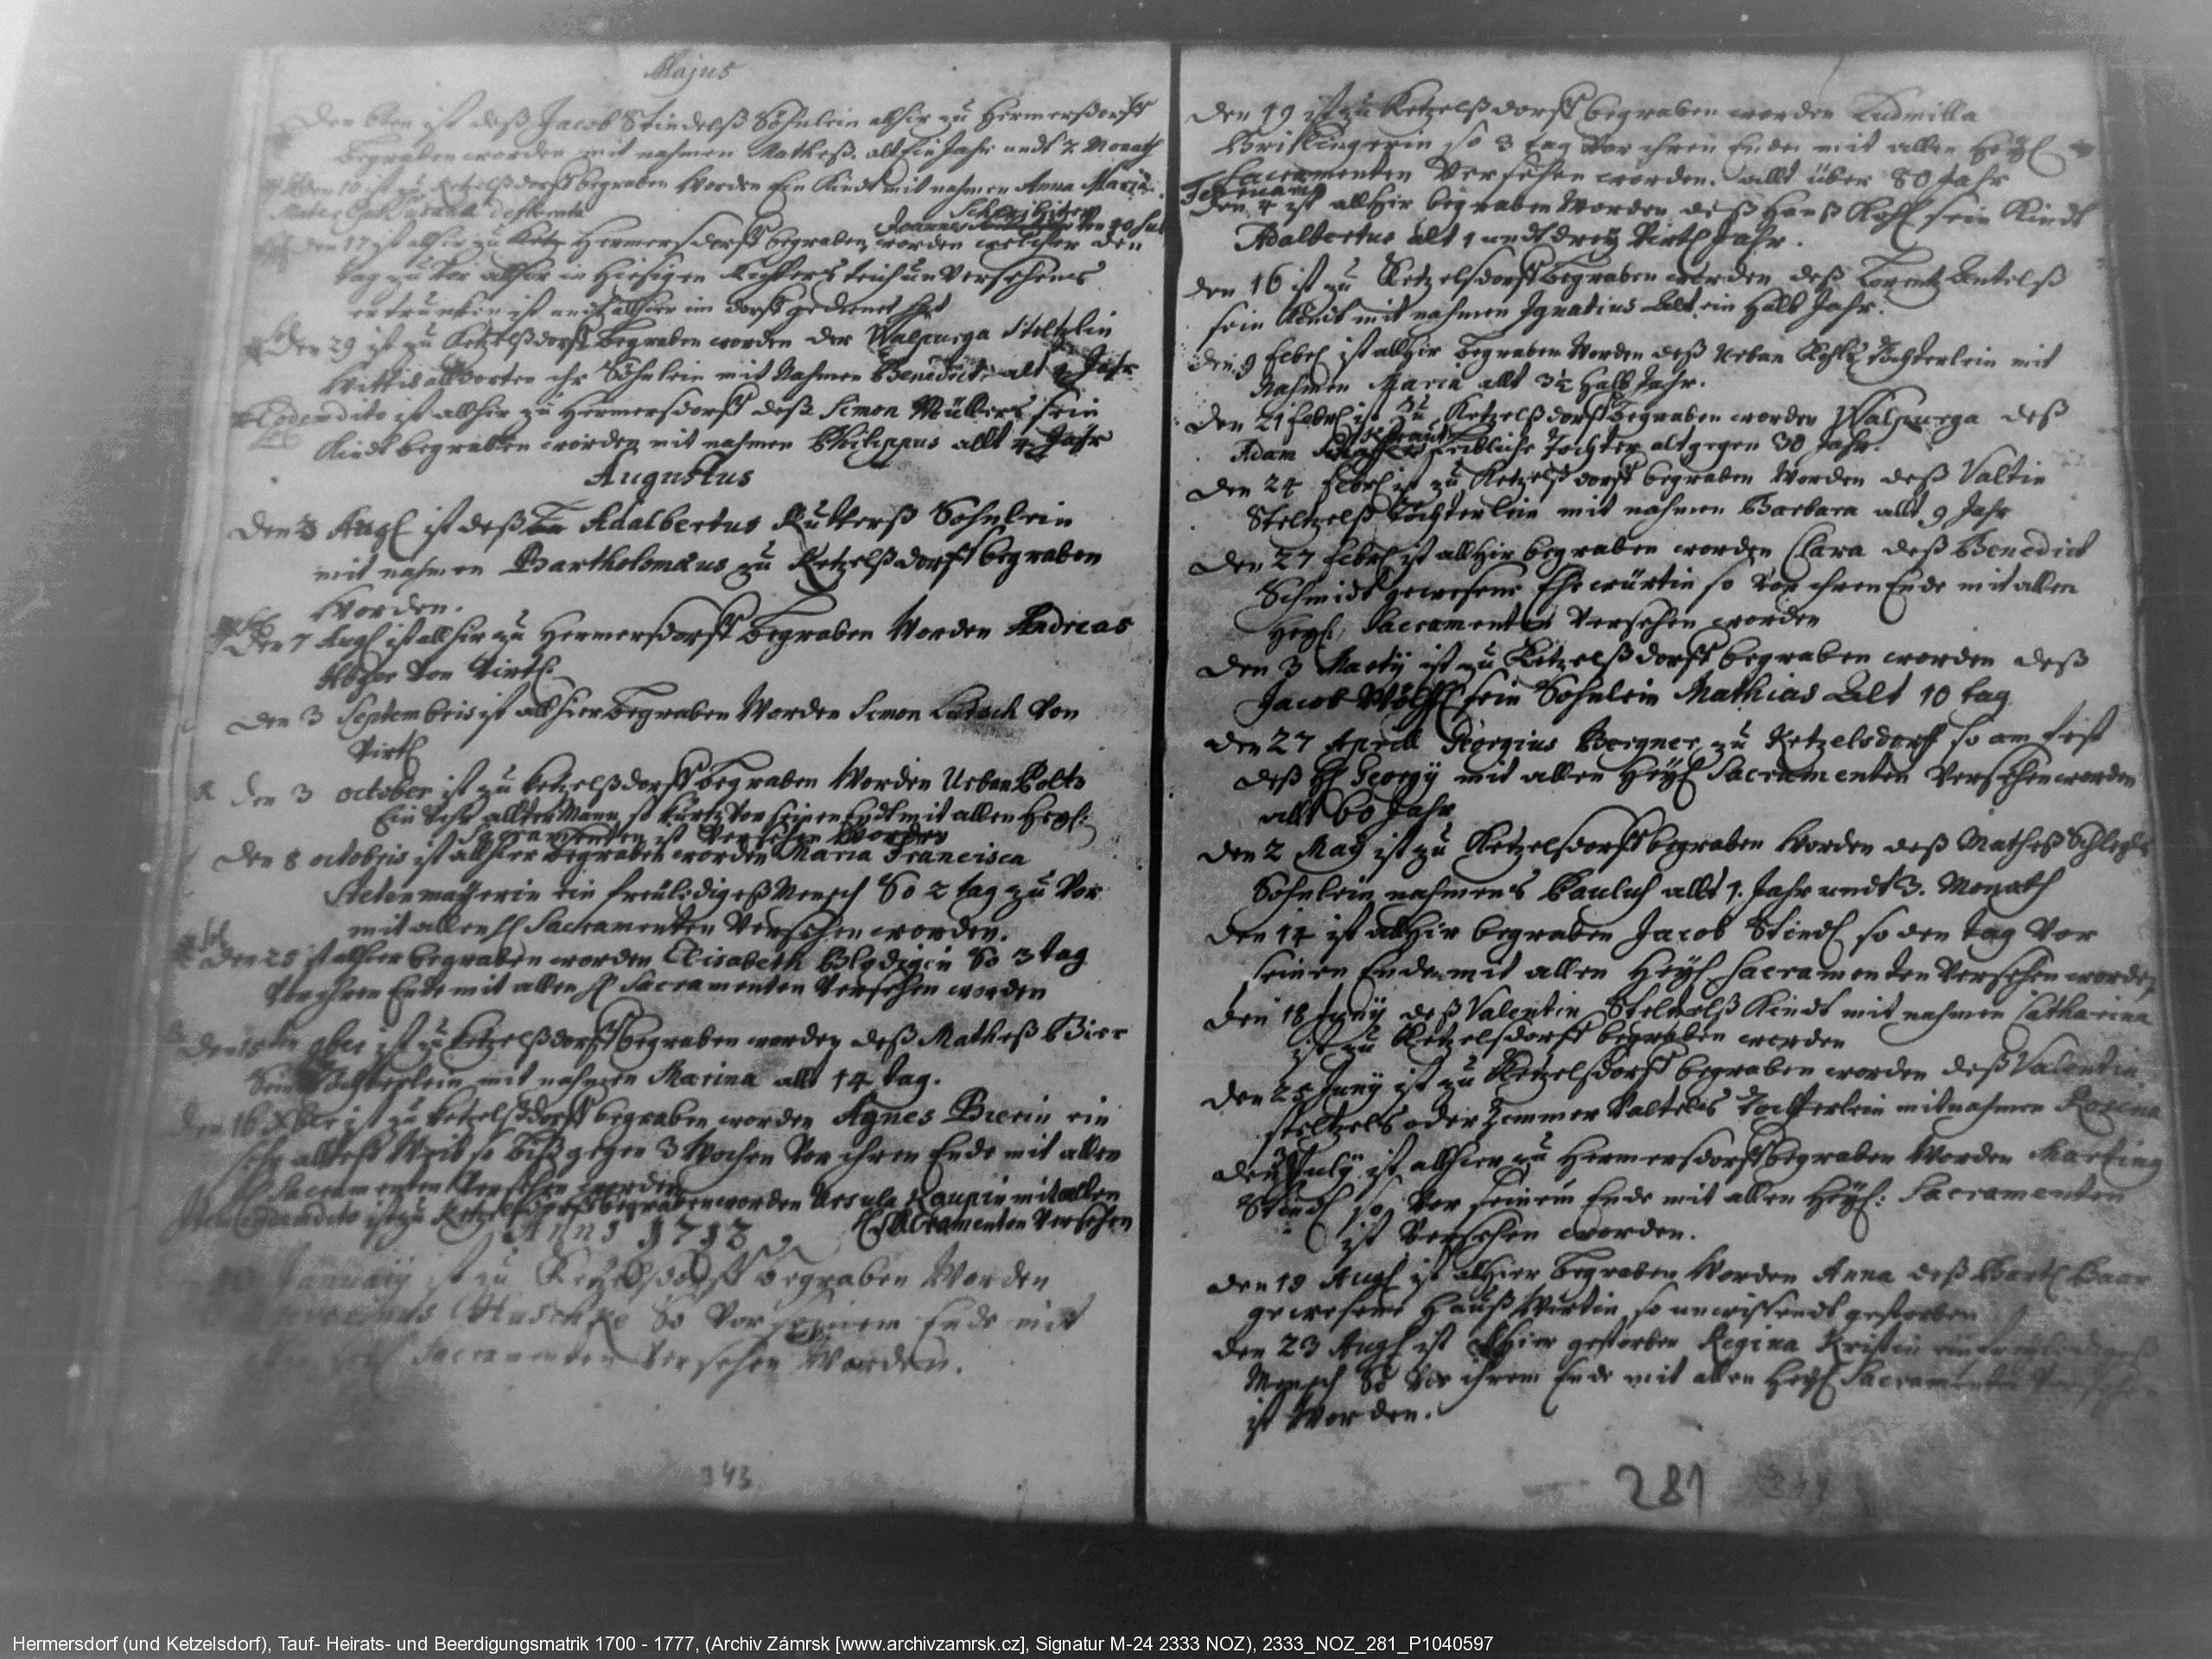 Majus
Den 6ten ist deß Jacob Stindelß Söhnlein alhir zu Hermerßdorff
begraben worden mit nahmen Matheß alt Ein Jahr undt 7 Monath
den 10 ist zu Ketzelßdorff begraben Worden Ein Kindt mit nahmen Anna Maria
Mater defloenta
Joannes
den 17 ist alhir zu Hermersdorff begraben worden welcher den
tag zu vor alhier in hiesigen Richters teich unversehens
ertruncken ist undt allhier im dorff gedienet hat
den 29 ist zu Ketzelßdorff begraben worden der Walpurga Steltzlin
ihr Söhnlein mit Nahmen Benedict alt Jahr
Eodem dito ist allhir zu Hermersdorff deß Simon Müllers sein
Kindt begraben worden mit nahmen Philippus allt 4 Jahr
Augustus
Den 3 Augl ist deß Adalbertus Rutterß Söhnlein
mit nahmen Bartholomäus zu Ketzelßdorff begraben
Worden.
Den 7 Augl ist allhir zu Hermersdorff Begraben Worden Andreas
von Virtl
Den 3 Septembris ist allhier Begraben Worden Simon Von
Virtl
den 3 october ist zu Ketzelßdorff Begraben Worden Urban Poltz
Ein Sehr allter Mann so kurtz vor seinen Endt mit allen Heyl:
Sacramenten ist Versehen Worden
Den 8 octobris ist allhier begraben worden Maria Francisca
Stetenmayerin ein freyledigeß Mensch So 2 tag zu vor
mit allen Sacramenten Versehen worden.
Den 25 ist allhier begraben worden Elisabeth So 3 tag
Vor ihrem Ende mit allen Sacramenten Versehen worden
9ber ist zu Ketzelßdorff begraben worden deß Matheß Bier
Sein Töchterlein mit nahmen Marina allt 14 tag.
Den 16 Xber ist zu Ketzelßdorff begraben worden Agnes Bierin ein
sehr altteß Weib so biß gegen 3 Wochen vor ihren Ende mit allen
Sacramenten Versehen worden
Eodem dito ist zu Ketzelßdorff begraben worden Ursula mit allen
Sacramenten Versehen
Anno 1713
Januarij ist zu Ketzelsdorff begraben Worden
So Vor seinem Ende mit
Sacramenten Versehen Worden.
343
Den 19 ist zu Ketzelßdorff begraben worden Ludmilla
so 3 tag vor ihren Ende mit allen Heyl
Sacramenten Versehen worden. allt über 80 Jahr
Februarius
Den 4 ist allhir begraben Worden deß Hanß Kohl sein Kindt
Adalbertus alt 1 undt drey Virtl Jahr.
den 16 ist zu Ketzelsdorff begraben worden deß Lorentz
sein Kindt mit nahmen Ignatius Alt ein Halb Jahr.
den 9 Febrl ist allhir begraben Worden deß Urban Kohls Töchterlein mit
Nahmen Maria allt 3½ Halb Jahr.
Den 21 Febrl ist zu Ketzelßdorff begraben worden Walpurga deß
Adam leibliche Tochter alt gegen 30 Jahr.
Den 24 Febrl ist zu Ketzelßdorff begraben Worden deß Valtin
Steltzelß Töchterlein mit nahmen Barbara allt 9 Jahr
Den 27 Febrl ist allhir begraben worden Clara deß Benedict
Schmidt gewesene Ehewürtin so vor ihren Ende mit allen
Heyl. Sacramenten Versehen worden
Den 3 Martij ist zu Ketzelßdorff begraben worden deß
Jacob Wolff sein Söhnlein Mathias Alt 10 tag
Den 27 Aprill Georgius Bergner zu Ketzelsdorff so am Fest
deß Hl Georgij mit allen Heyl Sacramenten Versehen worden
allt 60 Jahr
Den 2 May ist zu Ketzelsdorff begraben Worden deß Matheß Schlegls
Söhnlein nahmens Pauluß allt 1. Jahr undt 3. Monath
Den 14 ist allhir begraben Jacob Stindl so den tag Vor
seinen Ende mit allen Heyl Sacramenten Versehen worden
Den 18 Junij deß Valentin Steltzelß Kindt mit nahmen Catharina
ist zu Ketzelsdorff begraben worden
Den 25 Junij ist zu Ketzelsdorff begraben worden deß Valentin
Steltzels oder Zimmer Valtels Töchterlein mit nahmen Rosina
Den July ist allhier zu Hermersdorff begraben Worden Martinus
Stindl so Vor seinem Ende mit allen Heyl: Sacramenten
ist Versehen worden.
Den 19 Augl ist alhier begraben Worden Anna deß Bartl Baar
gewesene Hauß Wirtin so unwissendt gestorben
Den 23 Augl ist alhier gestorben Regina Kristin
Mensch So Vor ihrem Ende mit allen Heyl Sacramenten
ist Worden.
281
Hermersdorf (und Ketzelsdorf), Tauf- Heirats- und Beerdigungsmatrik 1700 - 1777, (Archiv Zámrsk [www.archivzamrsk.cz], Signatur M-24 2333 NOZ), 2333_NOZ_281_P1040597